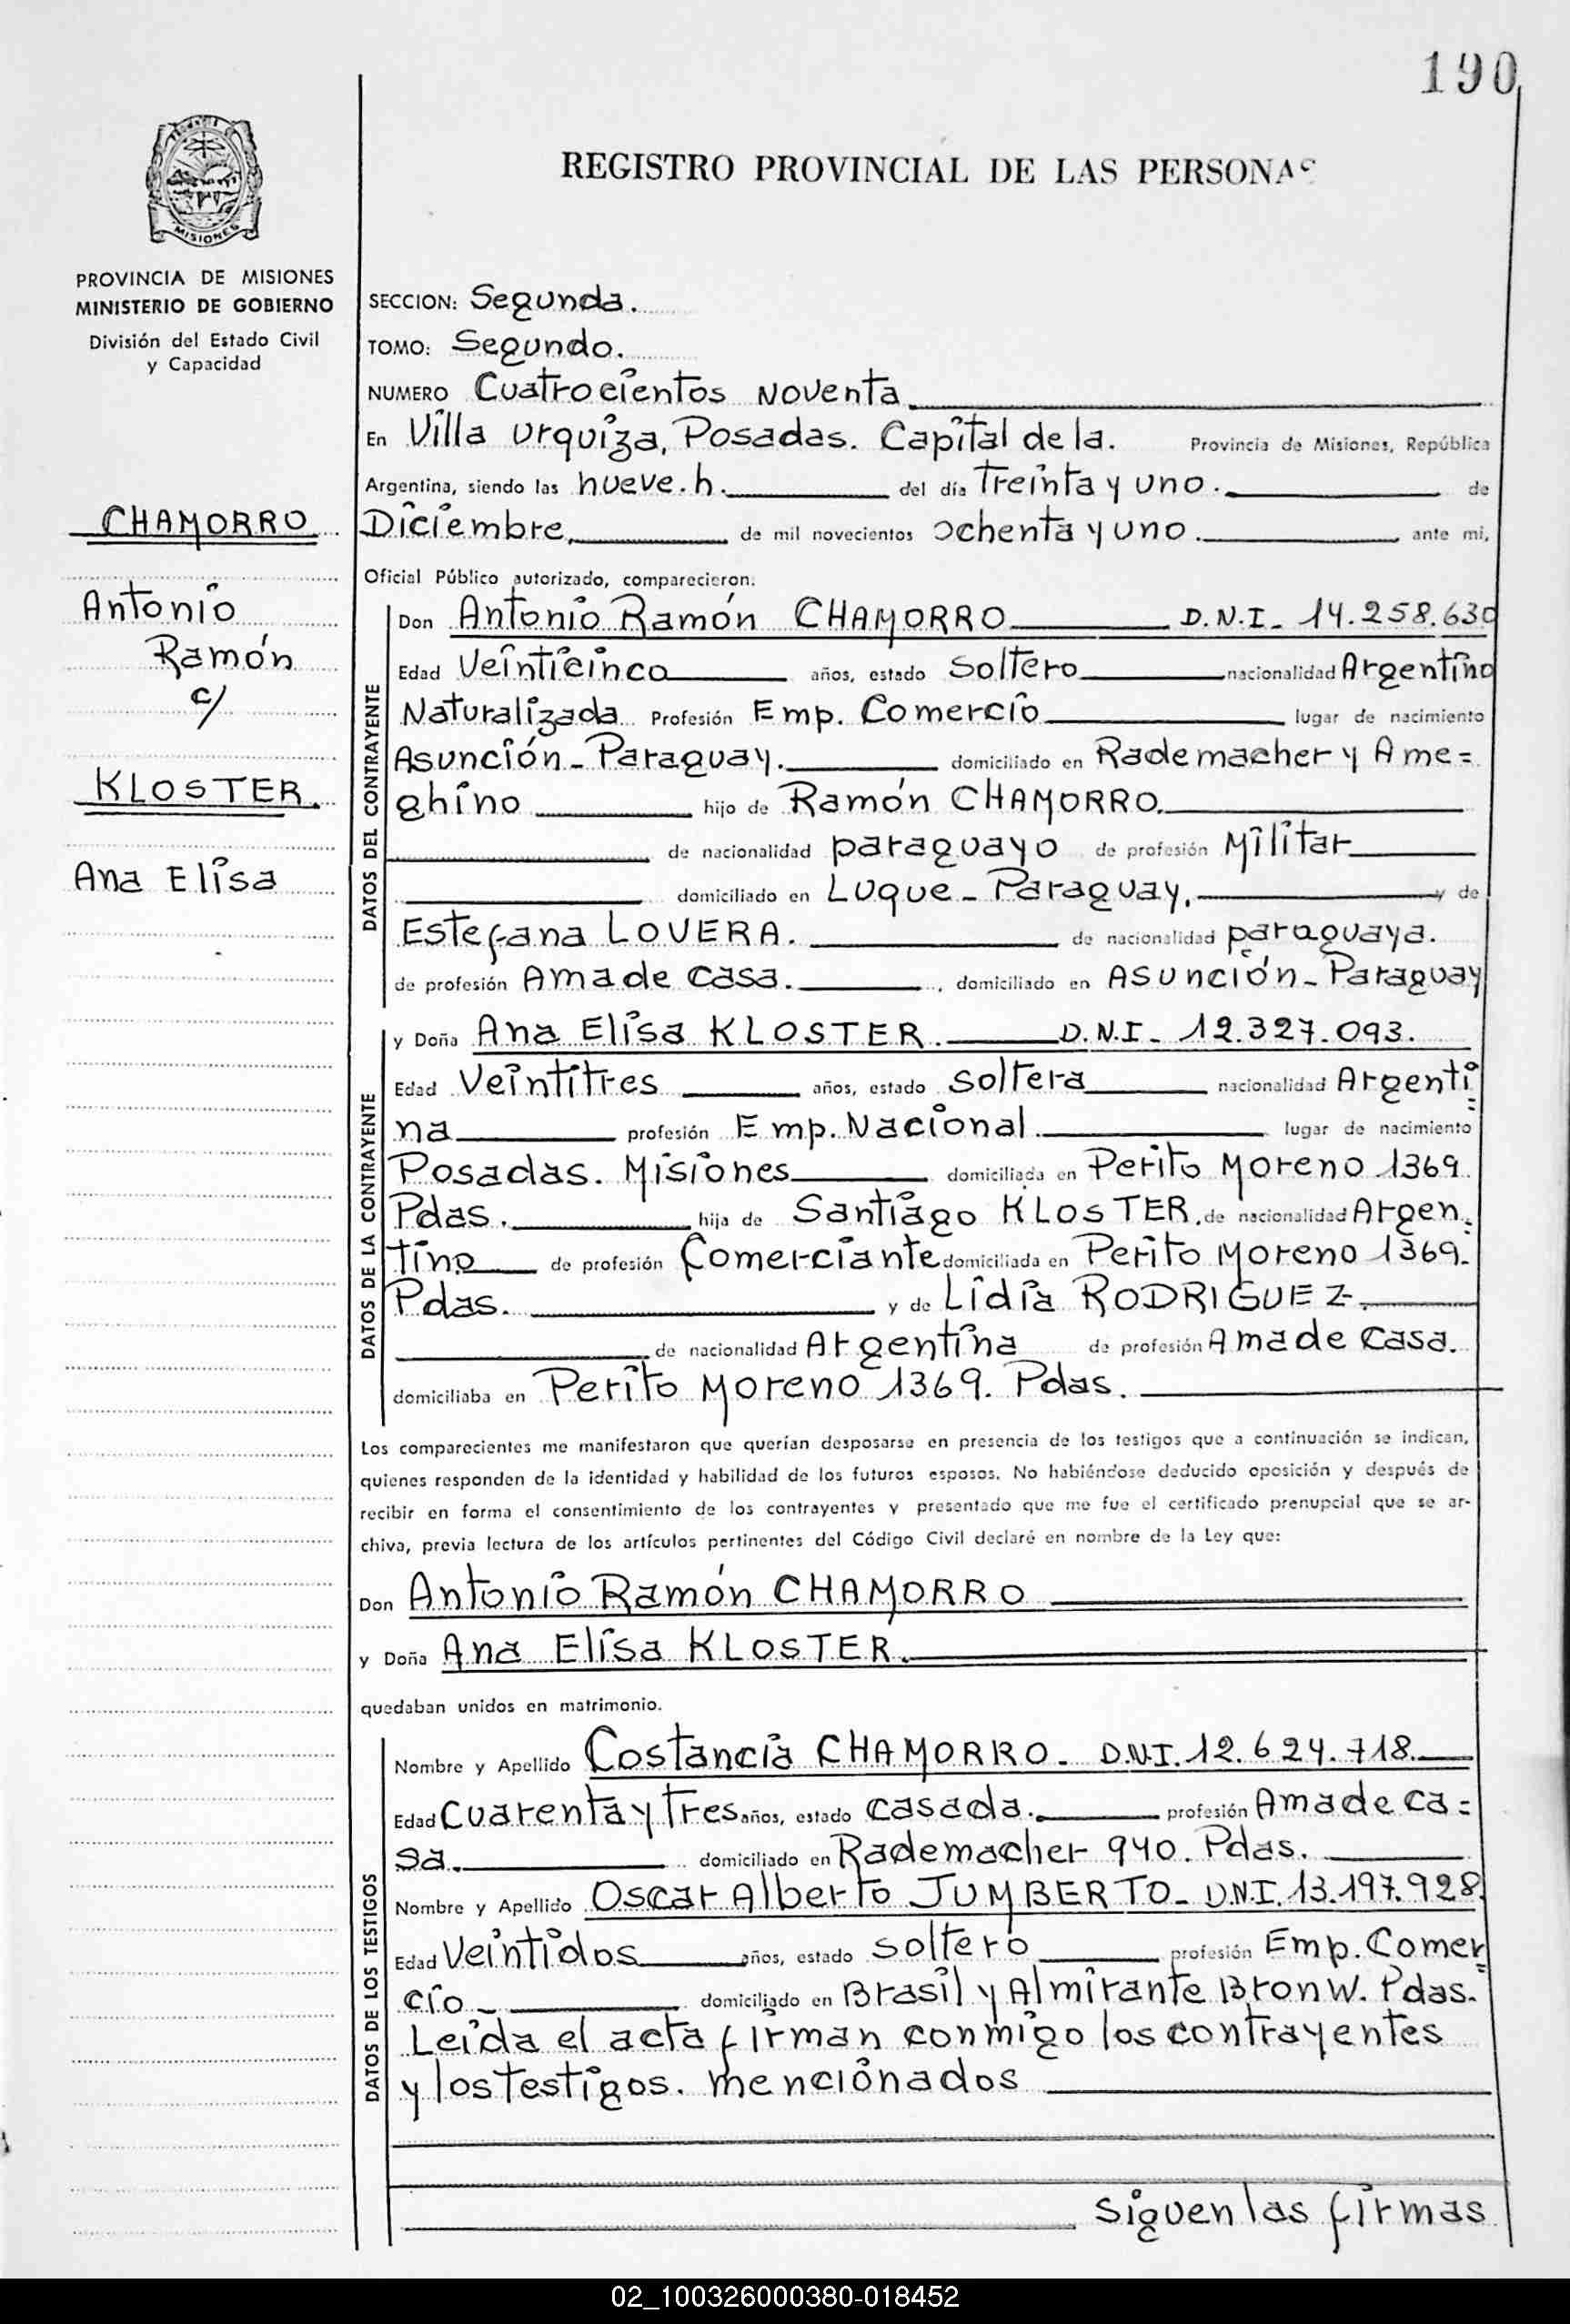 190
REGISTRO PROVINCIAL DE LAS PERSONAS
MISIONES
PROVINCIA DE MISIONES
MINISTERIO DE GOBIERNO
División del Estado Civil
y Capacidad
CHAMORRO
Antonio
Ramón
c/
KLOSTER.
Ana Elisa
SECCION: Segunda.
TOMO: Segundo.
NUMERO Cuatrocientos Noventa
En Villa Urquiza, Posadas. Capital de la. Provincia de Misiones, República
Argentina, siendo las nueve.h. del día Treinta y uno. de
Diciembre, de mil novecientos ochenta y uno. ante mi,
Oficial Público autorizado, comparecieron:
DATOS DEL CONTRAYENTE
Don Antonio Ramón CHAMORRO D.N.I- 14.258.630
Edad Veinticinco años, estado Soltero nacionalidad Argentino
Naturalizada Profesión Emp. Comercio lugar de nacimiento
Asunción-Paraguay. domiciliado en Rademacher y Ame=
ghino hijo de Ramón CHAMORRO.
de nacionalidad paraguayo de profesión Militar
domiciliado en Luque-Paraguay, y de
Estefana LOVERA. de nacionalidad paraguaya.
de profesión Ama de Casa. , domiciliado en Asunción-Paraguay
DATOS DE LA CONTRAYENTE
y Doña Ana Elisa KLOSTER. D.N.I- 12.327.093.
Edad Veintitres años, estado Soltera nacionalidad Argenti=
na profesión Emp. Nacional. lugar de nacimiento
Posadas. Misiones domiciliada en Perito Moreno 1369.
Pdas. hija de Santiago KLOSTER, de nacionalidad Argen=
tino de profesión Comerciante domiciliada en Perito Moreno 1369.
Pdas. y de Lidia RODRIGUEZ.
de nacionalidad Argentina de profesión Ama de Casa.
domiciliaba en Perito Moreno 1369. Pdas.
Los comparecientes me manifestaron que querían desposarse en presencia de los testigos que a continuación se indican,
quienes responden de la identidad y habilidad de los futuros esposos. No habiéndose deducido oposición y después de
recibir en forma el consentimiento de los contrayentes y presentado que me fue el certificado prenupcial que se ar-
chiva, previa lectura de los artículos pertinentes del Código Civil declaré en nombre de la Ley que:
Don Antonio Ramón CHAMORRO
y Doña Ana Elisa KLOSTER.
quedaban unidos en matrimonio.
DATOS DE LOS TESTIGOS
Nombre y Apellido Costancia CHAMORRO- D.N.I. 12.624.718.
Edad Cuarenta y Tres años, estado Casada. profesión Ama de Ca=
sa. domiciliado en Rademacher 940. Pdas.
Nombre y Apellido Oscar Alberto JUMBERTO- D.N.I. 13.197.928.
Edad Veintidos años, estado Soltero profesión Emp. Comer=
cio- domiciliado en Brasil y Almirante Bronw. Pdas.
Leida el acta firman conmigo los contrayentes
y los testigos. mencionados
Siguen las firmas
02_100326000380-018452